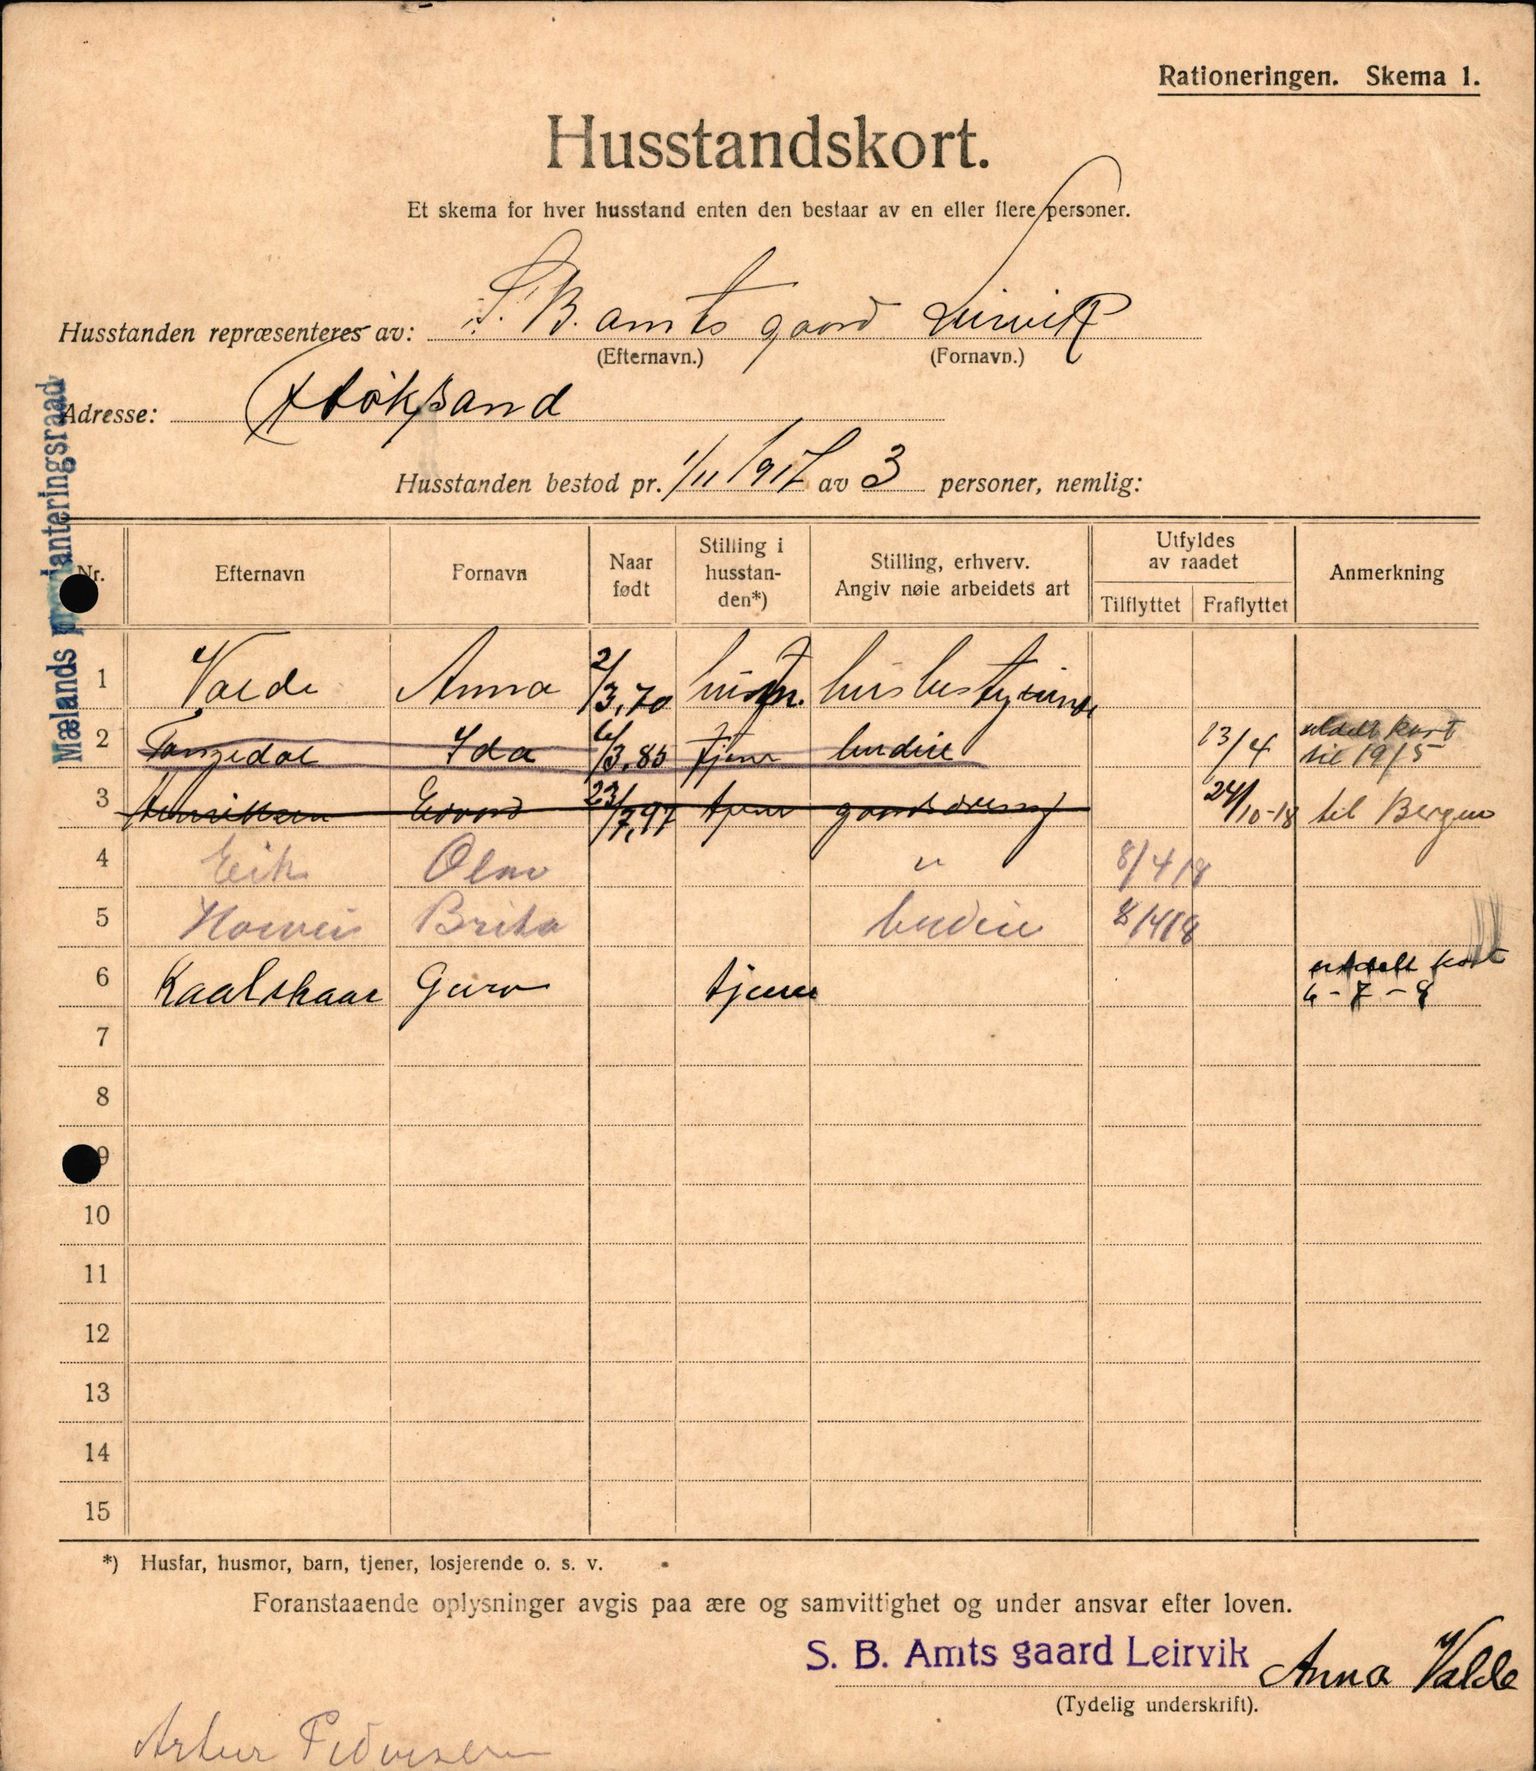 Rationeringen. Skema 1.
Husstandskort.
Et skema for hver husstand enten den bestaar av en eller flere personer.
Husstanden repræsenteres av: S. B. amts gaard Leirvik
(Efternavn.) (Fornavn.)
Adresse: Støksand
Husstanden bestod pr. 1/11 1917 av 3 personer, nemlig:
Mælands provianteringsraad
Nr. Efternavn Fornavn Naar født Stilling i husstanden*) Stilling, erhverv. Angiv nøie arbeidets art Utfyldes av raadet Tilflyttet Fraflyttet Anmerkning
1 Valde Anna 2/3,70 husm. husbestyrinde
2 Tangedal Ida 6/3,85 tjener budeie 13/4 utdelt kort til 19/5
3 Henriksen Edvard 23/7,97 tjener 24/10-18 til Bergen
4 Eik Olav " 8/4 18
5 Brita budeie 8/4 18
6 Kaalskaar Guro tjener utdelt kort 6-7-8
7
8
9
10
11
12
13
14
15
*) Husfar, husmor, barn, tjener, losjerende o. s. v.
Foranstaaende oplysninger avgis paa ære og samvittighet og under ansvar efter loven.
S. B. Amts gaard Leirvik Anna Valde
(Tydelig underskrift).
Artur Pedersen